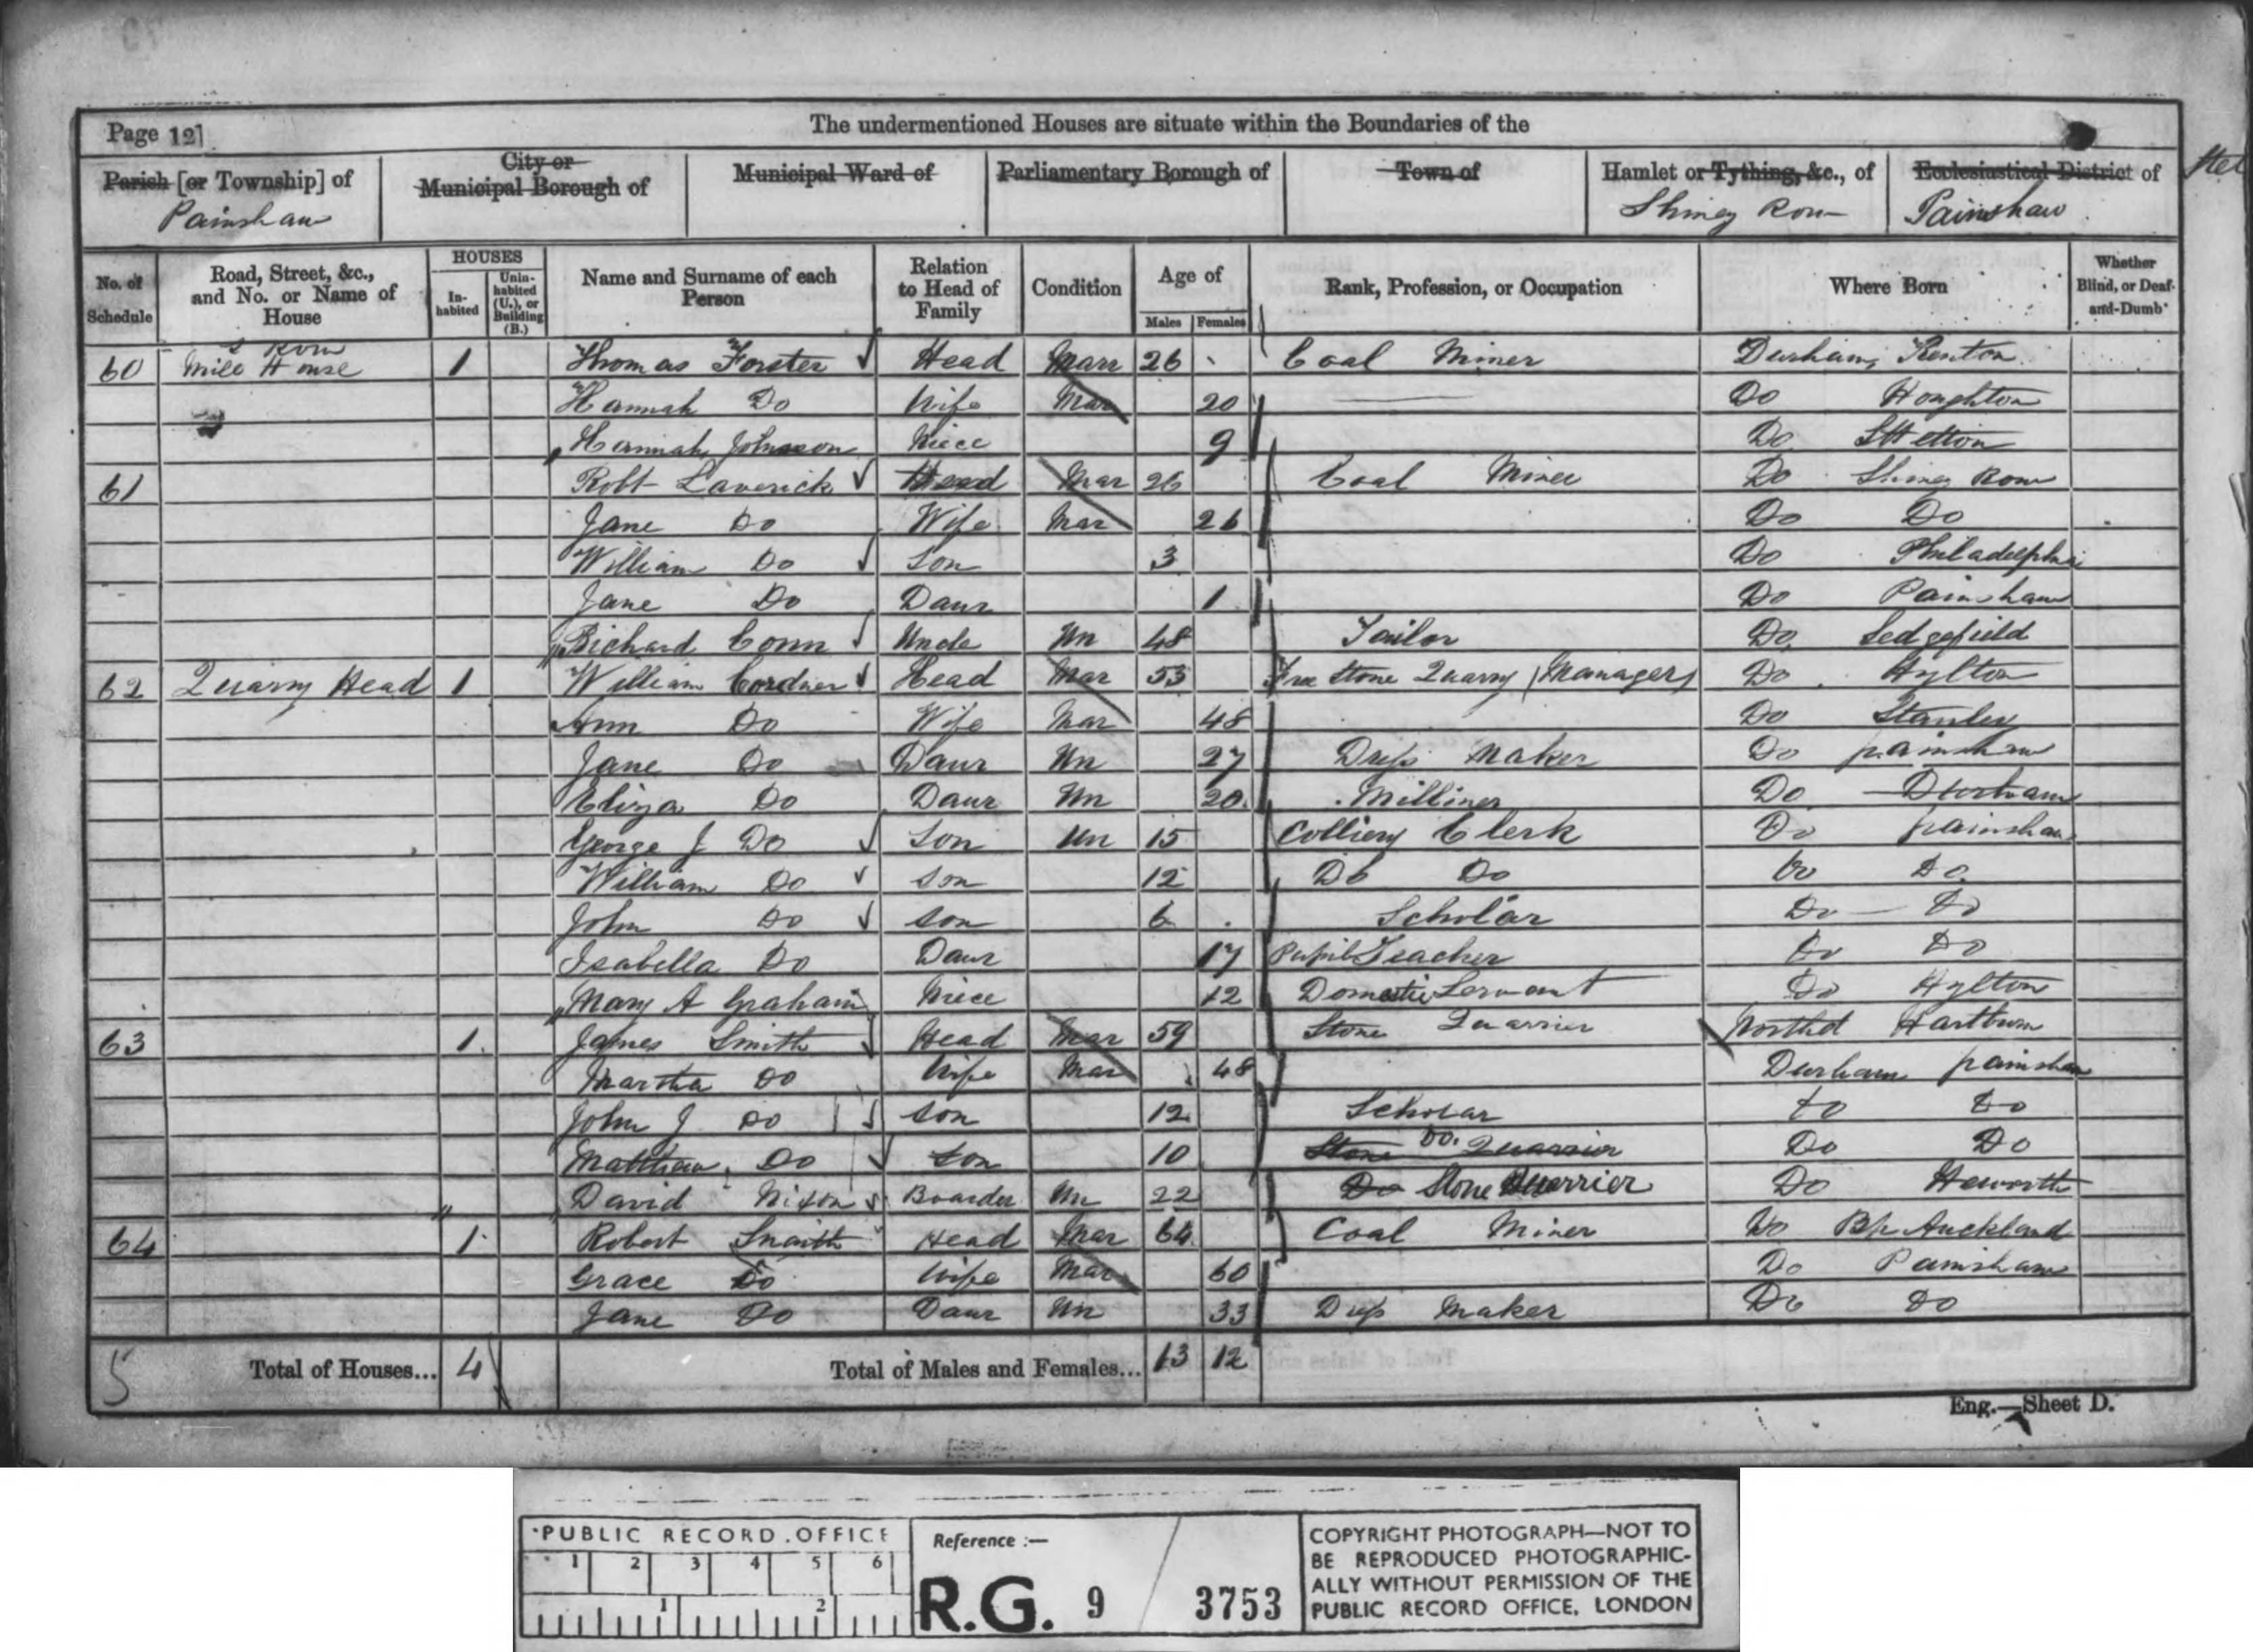 Page 12]
The undermentioned Houses are situate within the Boundaries of the
Parish [or Township] of
City or Municipal Borough of
Municipal Ward of
Parliamentary Borough of
Town of
Hamlet or Tything, &c., of
Ecclesiastical District of
Painshaw
Shiney Row
Painshaw
No. of Schedule
Road, Street, &c., and No. or Name of House
HOUSES
In-habited
Unin-habited (U.), or Building (B.)
Name and Surname of each Person
Relation to Head of Family
Condition
Age of
Males
Females
Rank, Profession, or Occupation
Where Born
Whether Blind, or Deaf-and-Dumb
Row
60 Mill House 1 Thomas Forster Head Marr 26 Coal Miner Durham, Renton
Hannah Do Wife Mar 20 Do Houghton
Hannah Johnson Niece 9 Do Hetton
61 Robt Laverick Head Mar 26 Coal Miner Do Shiney Row
Jane Do Wife Mar 26 Do Do
William Do Son 3 Do Philadelphia
Jane Do Daur 1 Do Painshaw
Richard Conn Uncle Un 48 Tailor Do Sedgefield
62 Quarry Head 1 William Cordner Head Mar 53 Free Stone Quarry (Manager) Do Hylton
Ann Do Wife Mar 48 Do Stanley
Jane Do Daur Un 27 Dress Maker Do painshaw
Eliza Do Daur Un 20 Milliner Do Durham
George J Do Son Un 15 Colliery Clerk Do painshaw
William Do Son 12 Do Do Do Do
John Do Son 6 Scholar Do Do
Isabella Do Daur 17 Pupil Teacher Do Do
Mary A Graham Niece 12 Domestic Servant Do Hylton
63 1 James Smith Head Mar 59 Stone Quarrier Northd Hartburn
Martha Do Wife Mar 48 Durham painshaw
John J Do Son 12 Scholar Do Do
Matthew Do Son 10 Stone Do. Quarrier Do Do
David Nixon Boarder Un 22 Do Stone Querrier Do Heworth
64 1 Robert Snaith Head Mar 64 Coal Miner Do Bp Auckland
Grace Do Wife Mar 60 Do Painshaw
Jane Do Daur Un 33 Dress Maker Do Do
5 Total of Houses... 4 Total of Males and Females... 13 12
Eng.—Sheet D.
PUBLIC RECORD OFFICE
1 2 3 4 5 6
1 2
Reference :—
R.G. 9 / 3753
COPYRIGHT PHOTOGRAPH—NOT TO
BE REPRODUCED PHOTOGRAPHIC-
ALLY WITHOUT PERMISSION OF THE
PUBLIC RECORD OFFICE, LONDON